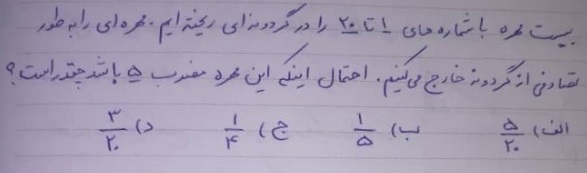 بیست مهره با شماره های ۱ تا ۲۰ را در گردونه ای ریخته ایم. مهره ای را به طور
تصادفی از گردونه خارج می کنیم. احتمال اینکه این مهره مضرب ۵ باشد چقدر است؟
الف) ۵/۲۰ ب) ۱/۵ ج) ۱/۴ د) ۳/۲۰